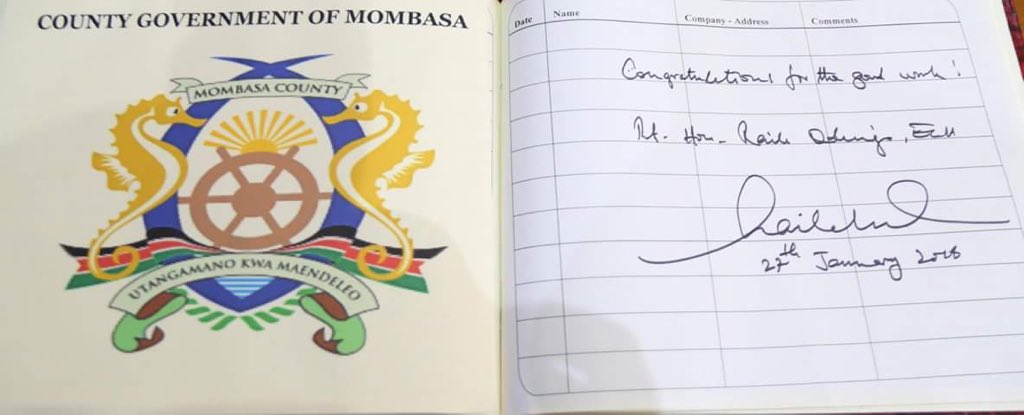 COUNTY GOVERNMENT OF MOMBASA
MOMBASA COUNTY
UTANGAMANO KWA MAENDELEO
Date Name Company - Address Comments
Congratulations for the good work!
Rt. Hon. Raila Odinga, EGH
27th January 2018